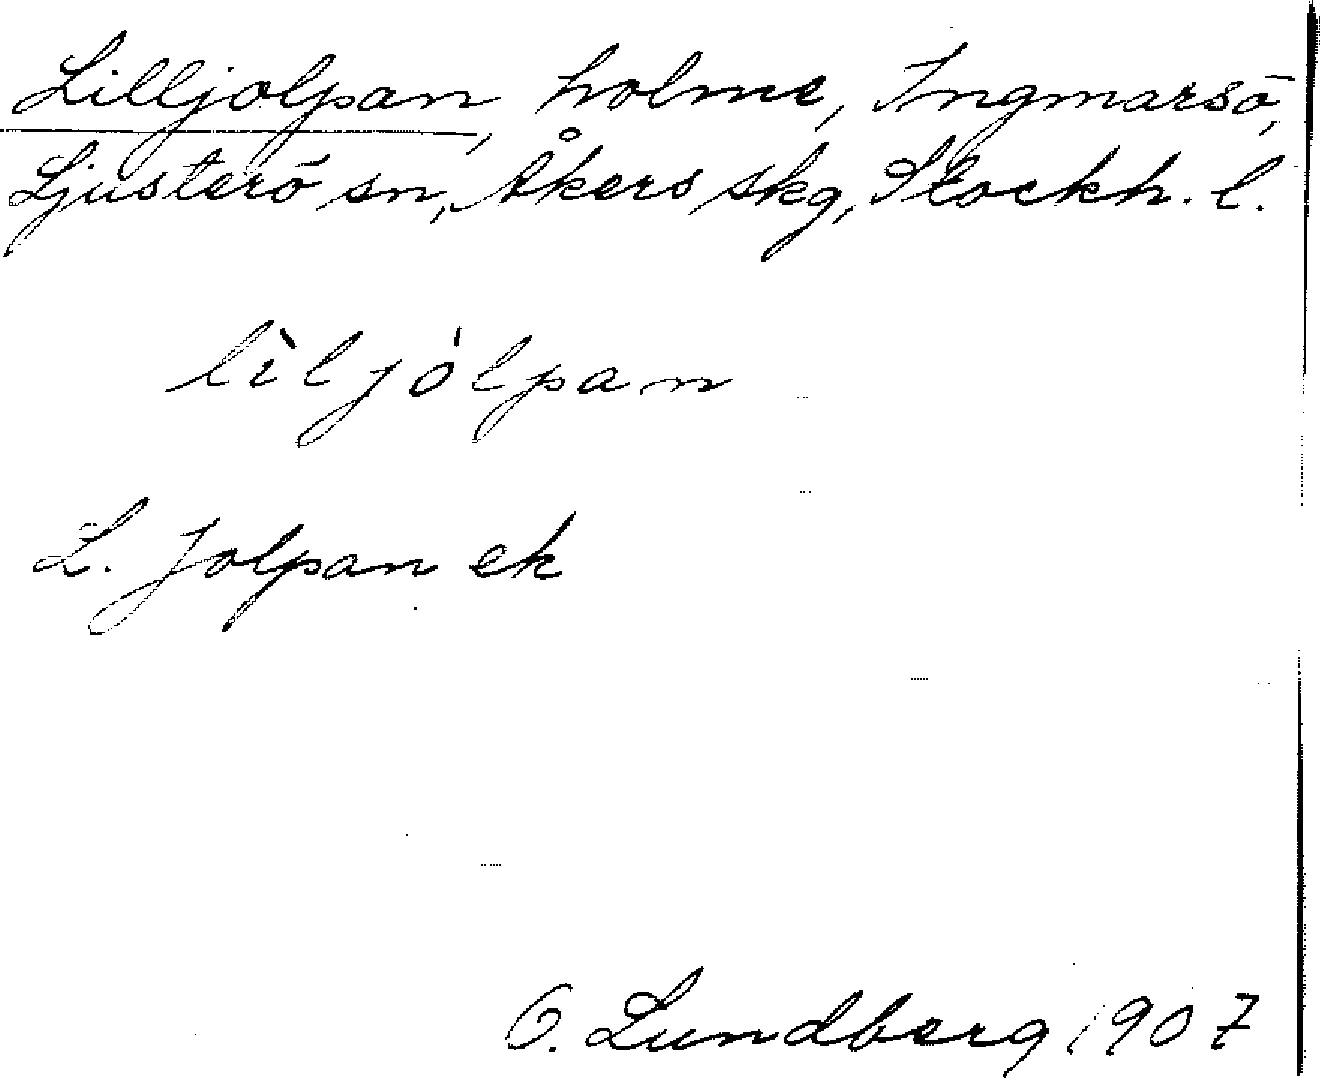 Lilljolpan, holme, Ingmarsö,
Ljusterö sn, Åkers skg, Stockh. l.
lìljólpan
L. Jolpan ek
O. Lundberg 1907